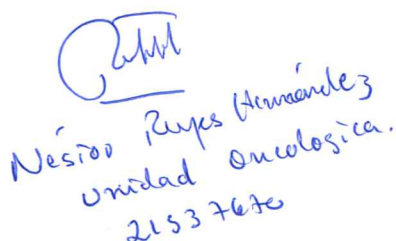 Néstor Reyes Hernández
unidad oncologica.
21537670